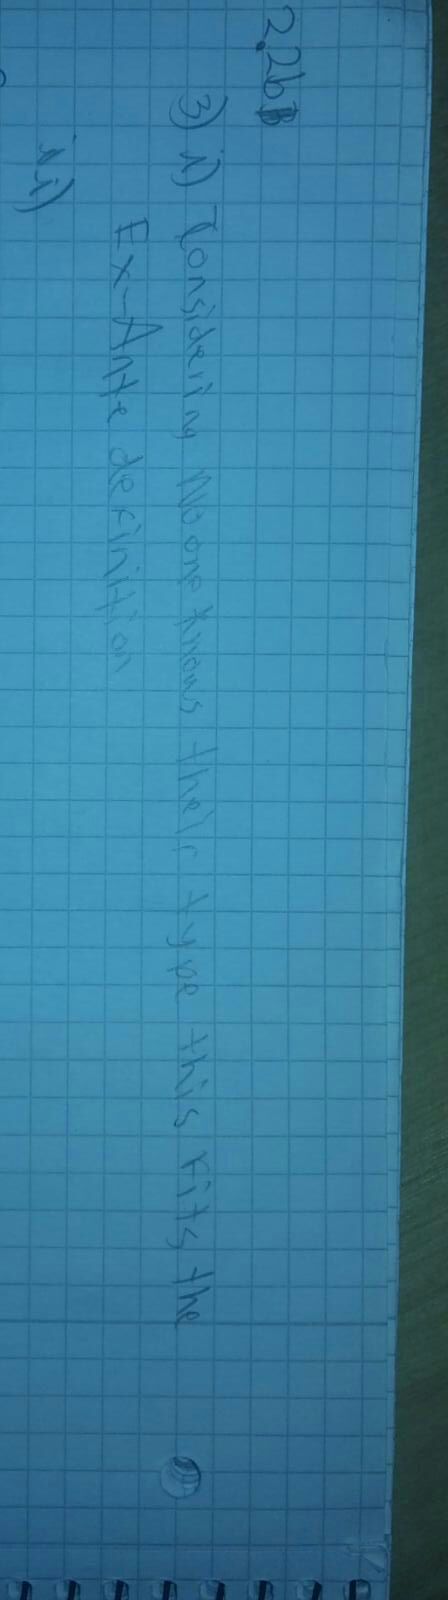 2.2b
3) i) Considering No one knows their type this fits the
Ex-Ante definition
ii)